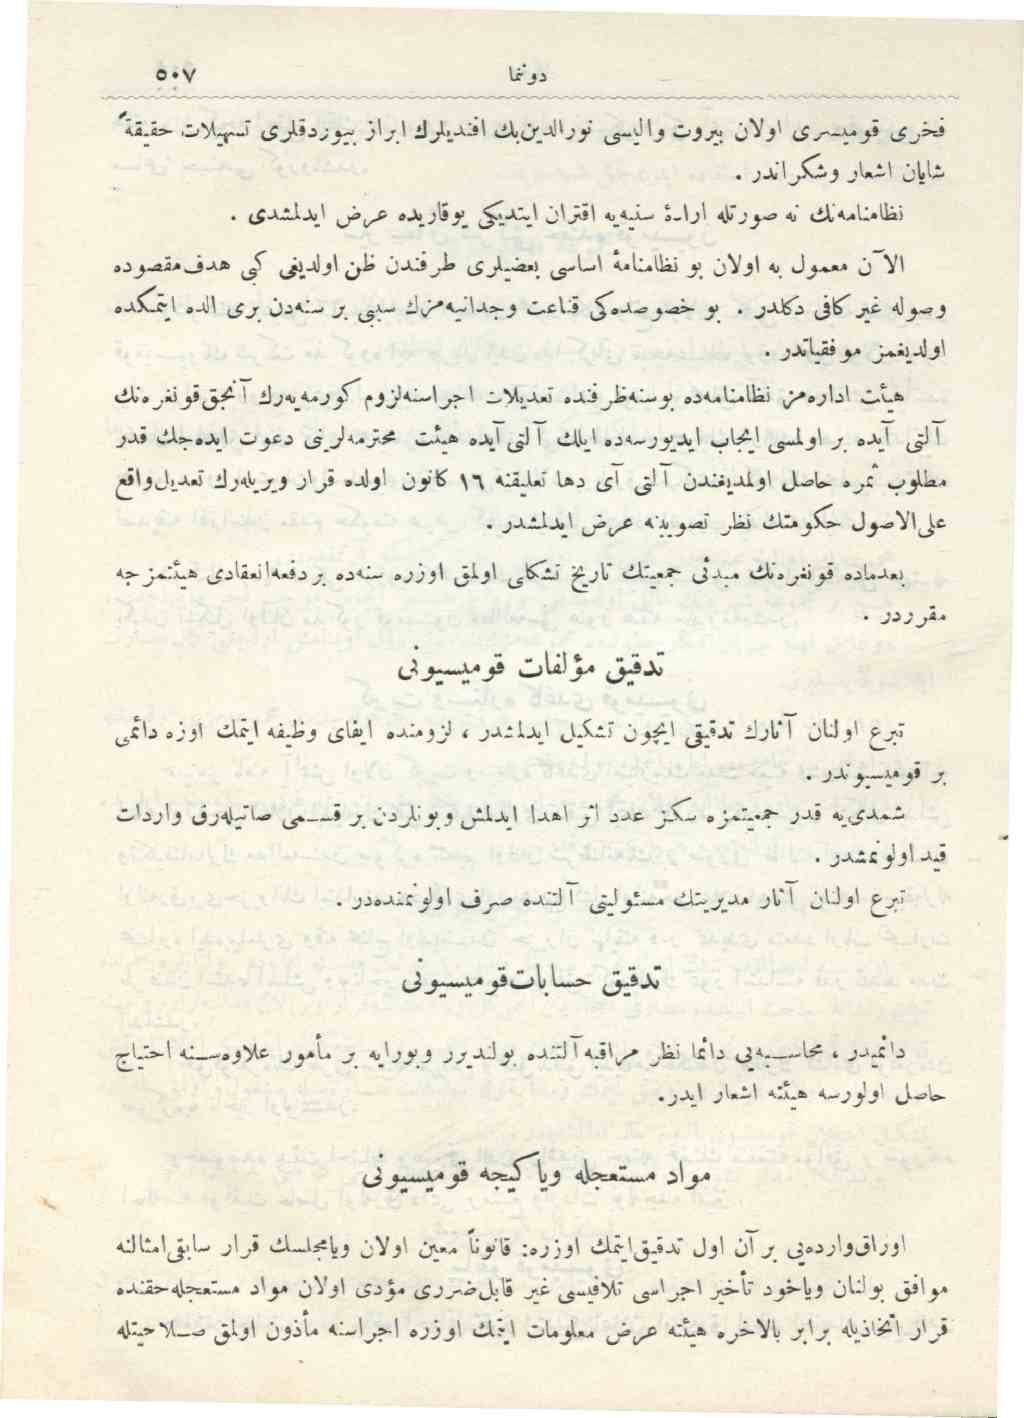 دونما ٥٠٧
فخری قومیسری اولان بیروت والیسی نورالدین بك افندیلرك ابراز بیوردقلری تسهیلات حقیقةً
شایان اشعار وشكراندر .
نظامنامه‌نك نه صورتله ارادۀ سنیه‌یه اقتران ایتدیكی یوقاریده عرض ایدلمشدی .
الآن معمول به اولان بو نظامنامۀ اساسی بعضیلری طرفندن ظن اولدیغی كبی هدف‌مقصوده
وصوله غیر كافی دكلدر . بو خصوصده‌كی قناعت وجدانیه‌مزك سببی بر سنه‌دن بری الده ایتمكده
اولدیغمز موفقیاتدر .
هیئت اداره‌مز نظامنامه‌ده بوسنه‌ظرفنده تعدیلات اجراسنه‌لزوم كورمه‌یه‌رك آنجق‌قونغره‌نك
آلتی آیده بر اولمسی ایجاب ایدیورسه‌ده ایلك آلتی‌آیده هیئت محترمه‌لرینی دعوت ایده‌جك قدر
مطلوب ثمره حاصل اولمدیغندن آلتی آی دها تعلیقنه ١٦ كانون اولده قرار ویریله‌رك تعدیل‌واقع
علی‌الاصول حكومتك نظر تصویبنه عرض ایدلمشدر .
بعدماده قونغره‌نك مبدئی جمعیتك تاریخ تشكلی اولمق اوزره سنه‌ده بردفعه‌انعقادی هیئتمزجه
مقرردر .
تدقیق مؤلفات قومیسیونی
تبرع اولنان آثارك تدقیقی ایچون تشكیل ایدلمشدر ، لزومنده ایفای وظیفه ایتمك اوزه دائمی
بر قومیسیوندر .
شمدی‌یه قدر جمعیتمزه سكز عدد اثر اهدا ایدلمش وبونلردن بر قسمی صاتیله‌رق واردات
قید اولونمشدر .
تبرع اولنان آثار مدیریتك مسئولیتی آلتنده صرف اولونمنده‌در .
تدقیق حسابات‌قومیسیونی
دائمیدر ، محاسبه‌یی دائما نظر مراقبه‌آلتنده بولندیرر وبورایه بر مأمور علاوه‌سنه احتیاج
حاصل اولورسه هیئته اشعار ایدر.
مواد مستعجله ویاكیجه قومیسیونی
اوراق‌وارده‌یی بر آن اول تدقیق‌ایتمك اوزره: قانوناً معین اولان ویامجلسك قرار سابقی‌امثالنه
موافق بولنان ویاخود تأخیر اجراسی تلافیسی غیر قابل‌ضرری مؤدی اولان مواد مستعجله‌حقنده
قرار اتخاذیله برابر بالاخره هیئته عرض معلومات ایتمك اوزره اجراسنه مأذون اولمق صلاحیتله